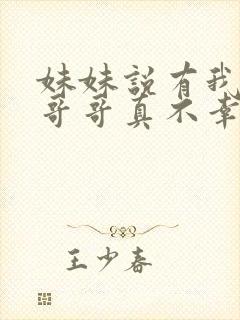 妹妹说有我
哥哥真不幸
王少春